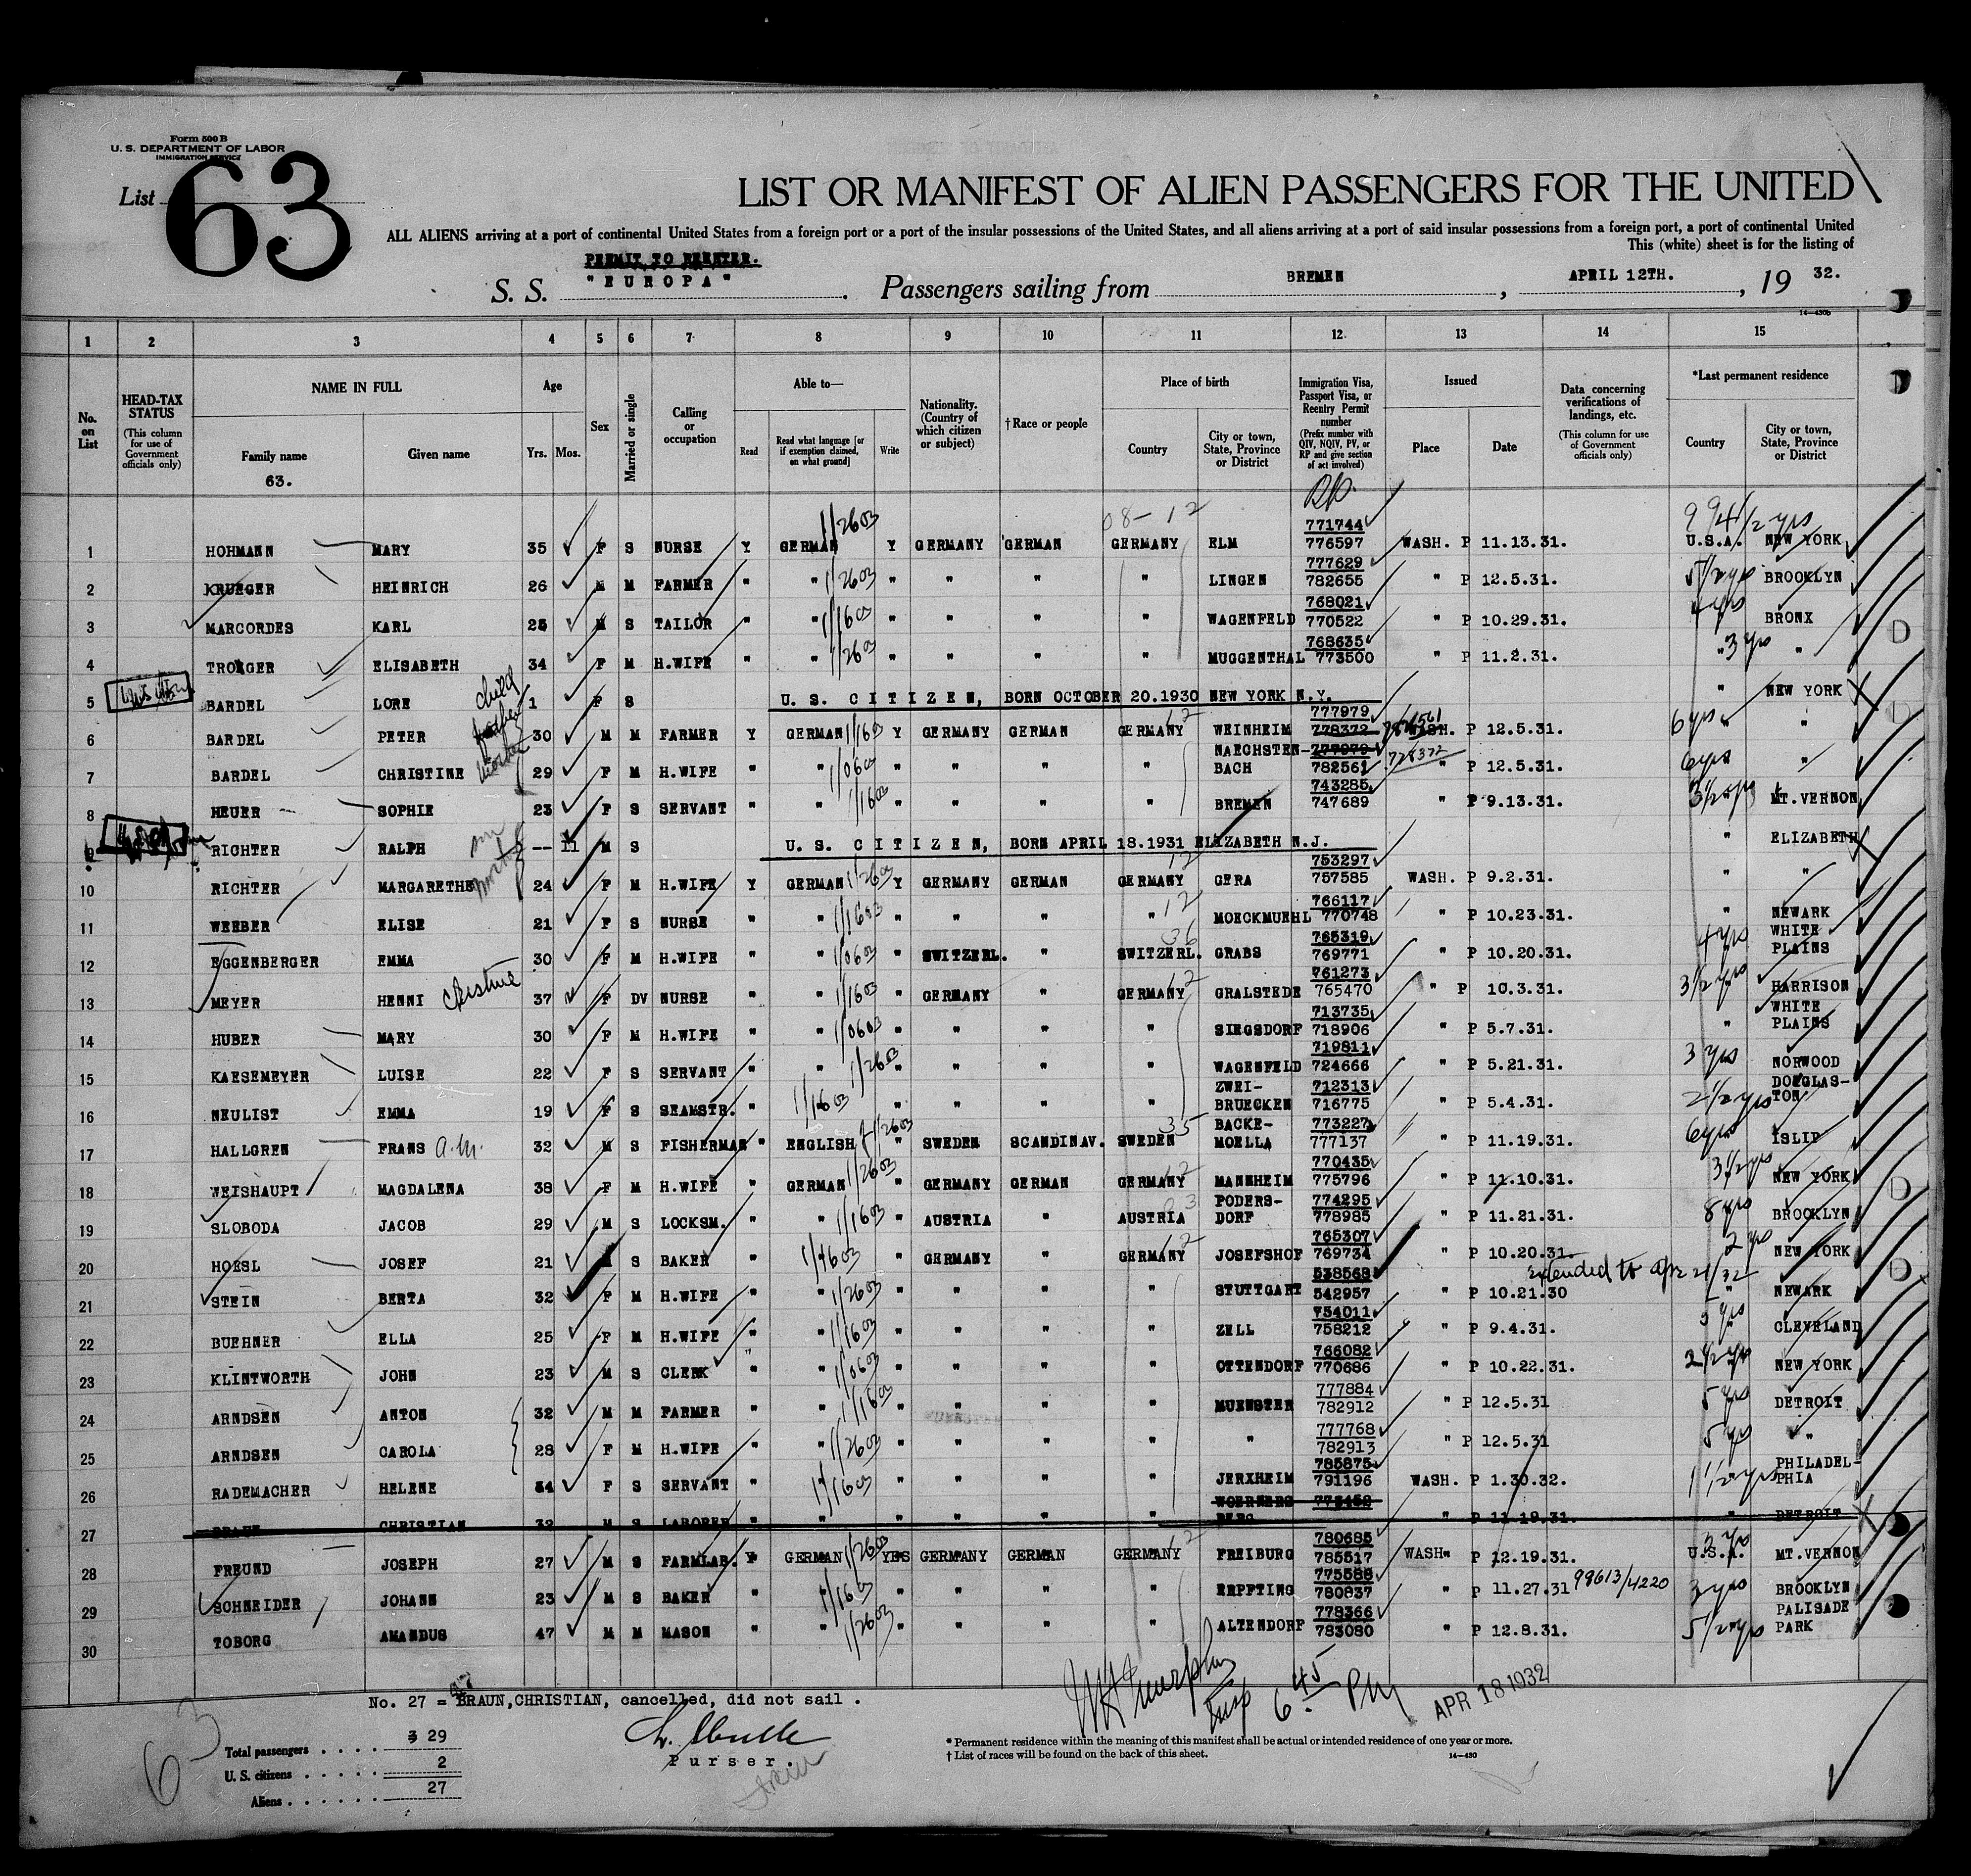 Form 500 B
U. S. DEPARTMENT OF LABOR
IMMIGRATION SERVICE
List 63
LIST OR MANIFEST OF ALIEN PASSENGERS FOR THE UNITED
ALL ALIENS arriving at a port of continental United States from a foreign port or a port of the insular possessions of the United States, and all aliens arriving at a port of said insular possessions from a foreign port, a port of continental United
This (white) sheet is for the listing of
PERMIT TO REENTER.
S. S. "EUROPA" . Passengers sailing from BREMEN , APRIL 12TH. , 19 32.
14-430b
1 2 3 4 5 6 7 8 9 10 11 12 13 14 15
No. on List
HEAD-TAX STATUS (This column for use of Government officials only)
NAME IN FULL Family name Given name
63.
Age Yrs. Mos.
Sex
Married or single
Calling or occupation
Able to— Read Read what language [or if exemption claimed, on what ground] Write
Nationality. (Country of which citizen or subject)
†Race or people
Place of birth Country City or town, State, Province or District
Immigration Visa, Passport Visa, or Reentry Permit number (Prefix number with QIV, NQIV, PV, or RP and give section of act involved)
Issued Place Date
Data concerning verifications of landings, etc. (This column for use of Government officials only)
*Last permanent residence Country City or town, State, Province or District
RP.
08-12
1 HOHMANN MARY 35 F S NURSE Y GERMAN Y GERMANY GERMAN GERMANY ELM 771744 776597 WASH. P 11.13.31. U.S.A. NEW YORK
2 KRUEGER HEINRICH 26 M M FARMER " " " " " " LINGEN 777629 782655 " P 12.5.31. 5 1/2 yrs BROOKLYN
3 MARCORDES KARL 25 M S TAILOR " " " " " " WAGENFELD 768021 770522 " P 10.29.31. 4 yrs BRONX
4 TROEGER ELISABETH 34 F M H.WIFE " " " " " " MUGGENTHAL 768635 773500 " P 11.2.31. " 3 yrs "
5 BARDEL LORE child 1 F S U. S. CITIZEN, BORN OCTOBER 20.1930 NEW YORK N.Y. " NEW YORK
6 BARDEL PETER father 30 M M FARMER Y GERMAN Y GERMANY GERMAN GERMANY WEINHEIM 777979 778372 WASH. P 12.5.31. 6 yrs " "
7 BARDEL CHRISTINE mother 29 F M H.WIFE " " " " " NAECHSTEN-BACH 777979 782561 778372 " P 12.5.31. 6 yrs "
8 HEUER SOPHIE 23 F S SERVANT " " " " " " BREMEN 743285 747689 " P 9.13.31. 3 1/2 yrs MT.VERNON
9 RICHTER RALPH son -- 11 M S U. S. CITIZEN, BORN APRIL 18.1931 ELIZABETH N.J. " ELIZABETH
10 RICHTER MARGARETHE mother 24 F M H.WIFE Y GERMAN Y GERMANY GERMAN GERMANY GERA 753297 757585 WASH. P 9.2.31. " "
11 WEEBER ELISE 21 F S NURSE " " " " " " MOECKMUEHL 766117 770748 " P 10.23.31. NEWARK
12 EGGENBERGER EMMA 30 F M H.WIFE " " " SWITZERL. " SWITZERL. GRABS 765319 769771 " P 10.20.31. 4 yrs WHITE PLAINS
13 MEYER HENNI Christine 37 F DV NURSE " " " GERMANY " GERMANY GRALSTEDE 761273 765470 " P 10.3.31. 3 1/2 yrs HARRISON
14 HUBER MARY 30 F M H.WIFE " " " " " " SIEGSDORF 713735 718906 " P 5.7.31. WHITE PLAINS
15 KAESEMEYER LUISE 22 F S SERVANT " " " " " " WAGENFELD 719811 724666 " P 5.21.31. 3 yrs NORWOOD
16 NEULIST EMMA 19 F S SEAMSTR. " " " " " ZWEI-BRUECKEN 712313 716775 " P 5.4.31. 2 1/2 yrs DOUGLAS-TON
17 HALLGREN FRANS A.M. 32 M S FISHERMAN " ENGLISH " SWEDEN SCANDINAV. SWEDEN BACKE-MOELLA 773227 777137 " P 11.19.31. 6 yrs ISLIP
18 WEISHAUPT MAGDALENA 38 F M H.WIFE " GERMAN " GERMANY GERMAN GERMANY MANNHEIM 770435 775796 " P 11.10.31. 3 1/2 yrs NEW YORK
19 SLOBODA JACOB 29 M S LOCKSM. " " " AUSTRIA " AUSTRIA PODERS-DORF 774295 778985 " P 11.21.31. 8 yrs BROOKLYN
20 HOESL JOSEF 21 M S BAKER " " GERMANY " GERMANY JOSEFSHOF 765307 769734 " P 10.20.31. 2 yrs NEW YORK
Extended to Apr 21/32
21 STEIN BERTA 32 F M H.WIFE " " " " " " STUTTGART 538568 542957 " P 10.21.30 " NEWARK
22 BUEHNER ELLA 25 F M H.WIFE " " " " " " ZELL 754011 758212 " P 9.4.31. 5 yrs CLEVELAND
23 KLINTWORTH JOHN 23 M S CLERK " " " " " " OTTENDORF 766082 770686 " P 10.22.31. 2 1/2 yrs NEW YORK
24 ARNDSEN ANTON 32 M M FARMER " " " " " " MUENSTER 777884 782912 " P 12.5.31 5 yrs DETROIT
25 ARNDSEN CAROLA 28 F M H.WIFE " " " " " " " 777768 782913 " P 12.5.31 5 yrs "
26 RADEMACHER HELENE 34 F S SERVANT " " " " " " JERXHEIM 785875 791196 WASH. P 1.30.32. 1 1/2 yrs PHILADEL-PHIA
27 BRAUN CHRISTIAN 32 M S LABORER " " " " " " BERG " P 11.19.31. " DETROIT
28 FREUND JOSEPH 27 M S FARMLAB. Y GERMAN YES GERMANY GERMAN GERMANY FREIBURG 780685 785517 WASH. P 12.19.31. U.S.A. MT.VERNON
29 SCHNEIDER JOHANN 23 M S BAKER " " " " " " ERPFTING 775588 780837 " P 11.27.31 99613/4220 3 yrs BROOKLYN
30 TOBORG AMANDUS 47 M M MASON " " " " " " ALTENDORF 778366 783080 " P 12.8.31. 5 1/2 yrs PALISADE PARK
No. 27 = BRAUN,CHRISTIAN, cancelled, did not sail .
6 45 PM
APR 18 1932
63
Total passengers . . . . 29
U. S. citizens . . . . . 2
Aliens . . . . . . 27
Purser.
* Permanent residence within the meaning of this manifest shall be actual or intended residence of one year or more.
† List of races will be found on the back of this sheet.
14-430